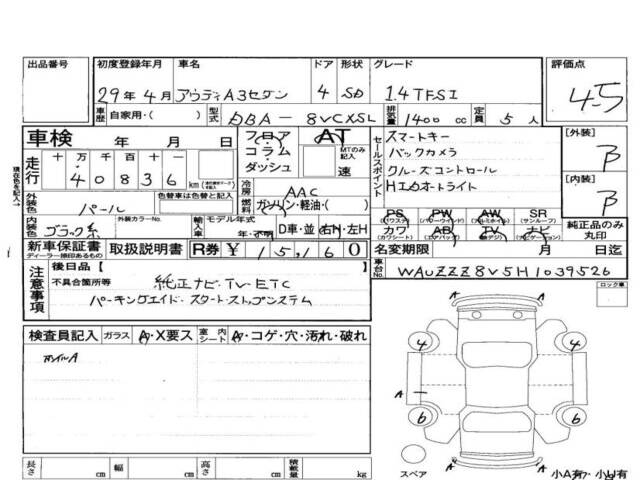 出品番号 初度登録年月 車名 ドア 形状 グレード 評価点
29年4月 アウディA3セダン 4 SD 1.4TFSI 4.5
車歴 自家用・( ) 型式 DBA-8VCXSL 排気量 1400 cc 定員 5 人
車検 年 月 日 フロア コラム・ダッシュ AT MTのみ記入 速
セールスポイント
スマートキー
バックカメラ
クルーズコントロール
オートライト
[外装] B
[内装] B
走行 十 万 千 百 十 一
40836 km
現在色を記入→
外装色 パール 色替車は色替と記入
冷房 AAC
燃料 ガソリン・軽油・( )
内装色 ブラック系 外装カラーNo. 輸入車 モデル年式 年・不明 D車・並 右H・左H
PS (パワステ) PW (パワーウインド) AW (アルミホイル) SR (サンルーフ)
カワ (カワシート) AB (エアバック) TV (地デジ) ナビ (ナビゲーション)
純正品のみ丸印
新車保証書 ディーラー捺印あるもの 取扱説明書 R券 ¥ 15,160
名変期限 月 日
車台No. WAUZZZ8V5H1039526
注意事項 後日品[ ]
不具合箇所等 純正ナビ・TV・ETC
パーキングエイド・スタートストップシステム
ロック車
検査員記入 ガラス A・X要ス 室内シート A・コゲ・穴・汚れ・破れ
ホイルA
A
4 4
A
6 6
A
スペア 小A有 小U有
長さ cm 幅 cm 高さ cm 積載量 kg